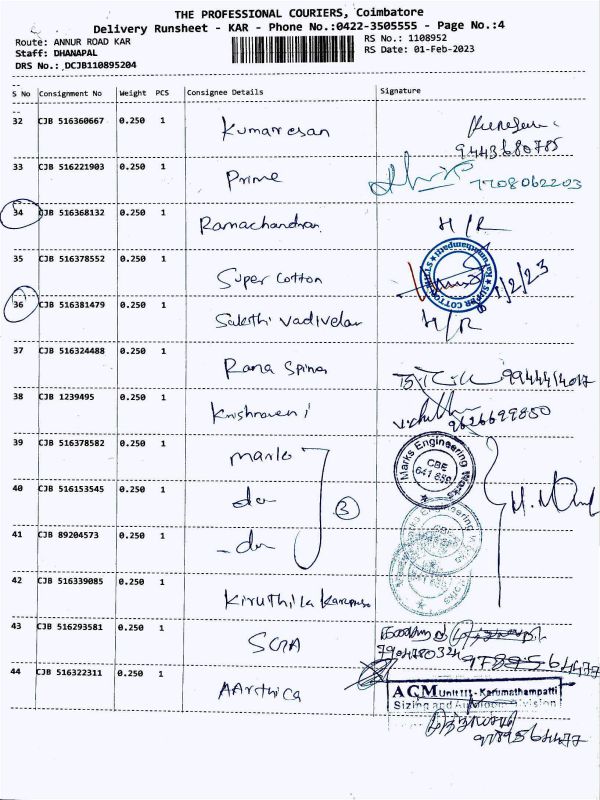 THE PROFESSIONAL COURIERS, Coimbatore
Delivery Runsheet - KAR - Phone No.:0422-3505555 - Page No.:4
Route: ANNUR ROAD KAR RS No.: 1108952
Staff: DHANAPAL RS Date: 01-Feb-2023
DRS No.: DCJB110895204
S No Consignment No Weight PCS Consignee Details Signature
32 CJB 516360667 0.250 1 Kumaresan
9443680785
33 CJB 516221903 0.250 1 Prime 7708062203
34 CJB 516368132 0.250 1 Ramachandran H/R
35 CJB 516378552 0.250 1 Super Cotton
SUPER COTTON
36 CJB 516381479 0.250 1 Sakthi Vadivelan H/R
37 CJB 516324488 0.250 1 Rana Spines
38 CJB 1239495 0.250 1 Krishnaveni 9626699850
39 CJB 516378582 0.250 1 Marks
Marks Engineering Works
CBE
641 659
40 CJB 516153545 0.250 1 do 3
41 CJB 89204573 0.250 1 -do-
42 CJB 516339085 0.250 1 Kiruthika
43 CJB 516293581 0.250 1
7904780324
44 CJB 516322311 0.250 1 AArthica
AGM Unit III - Karumathampatti
Sizing and Division
9789564477